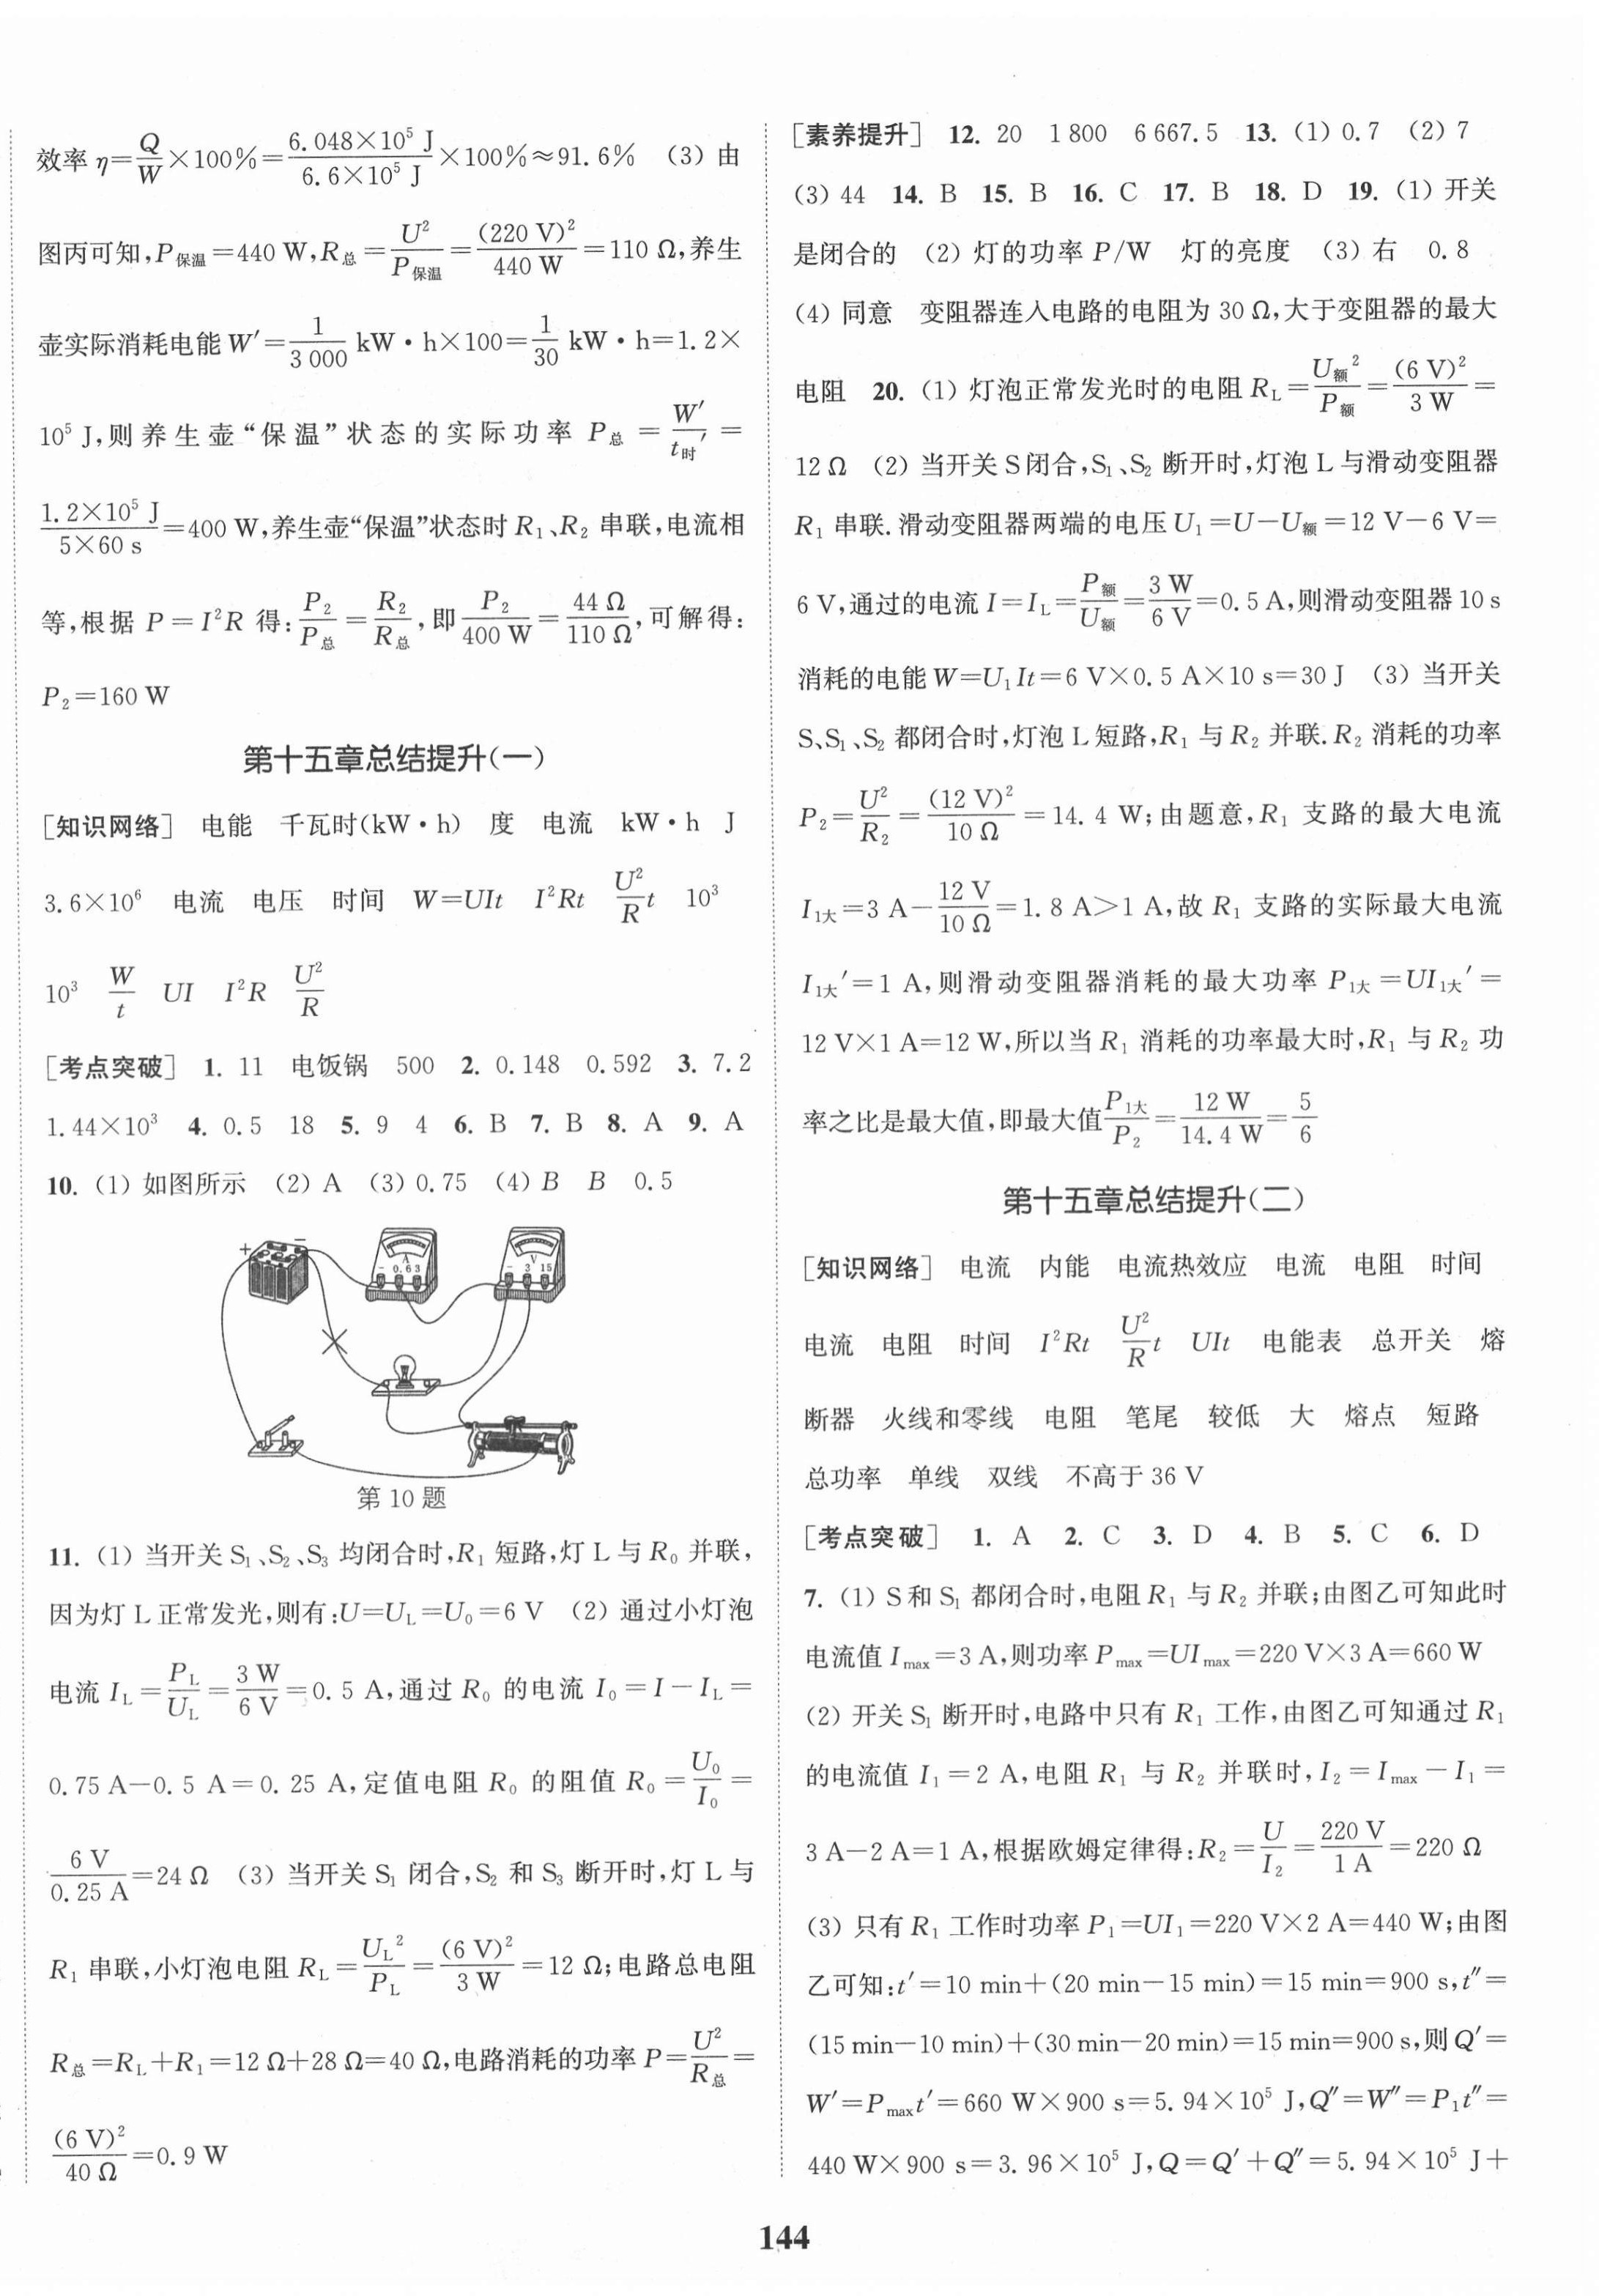 效率 η=Q/W×100%=6.048×10⁵ J/6.6×10⁵ J×100%≈91.6% (3) 由
图丙可知,P保温=440 W,R总=U²/P保温=(220 V)²/440 W=110 Ω,养生
壶实际消耗电能 W′=1/3 000 kW·h×100=1/30 kW·h=1.2×
10⁵ J,则养生壶“保温”状态的实际功率 P总=W′/t时′=
1.2×10⁵ J/5×60 s=400 W,养生壶“保温”状态时 R₁、R₂ 串联,电流相
等,根据 P=I²R 得:P₂/P总=R₂/R总,即P₂/400 W=44 Ω/110 Ω,可解得:
P₂=160 W
第十五章总结提升(一)
[知识网络] 电能 千瓦时(kW·h) 度 电流 kW·h J
3.6×10⁶ 电流 电压 时间 W=UIt I²Rt U²/R t 10³
10³ W/t UI I²R U²/R
[考点突破] 1. 11 电饭锅 500 2. 0.148 0.592 3. 7.2
1.44×10³ 4. 0.5 18 5. 9 4 6. B 7. B 8. A 9. A
10. (1) 如图所示 (2) A (3) 0.75 (4) B B 0.5
+ −
A
− 0.6 3
V
− 3 15
第 10 题
11. (1) 当开关 S₁、S₂、S₃ 均闭合时,R₁ 短路,灯 L 与 R₀ 并联,
因为灯 L 正常发光,则有:U=U_L=U₀=6 V (2) 通过小灯泡
电流 I_L=P_L/U_L=3 W/6 V=0.5 A,通过 R₀ 的电流 I₀=I−I_L=
0.75 A−0.5 A=0.25 A,定值电阻 R₀ 的阻值 R₀=U₀/I₀=
6 V/0.25 A=24 Ω (3) 当开关 S₁ 闭合,S₂ 和 S₃ 断开时,灯 L 与
R₁ 串联,小灯泡电阻 R_L=U_L²/P_L=(6 V)²/3 W=12 Ω;电路总电阻
R总=R_L+R₁=12 Ω+28 Ω=40 Ω,电路消耗的功率 P=U²/R总=
(6 V)²/40 Ω=0.9 W
[素养提升] 12. 20 1 800 6 667.5 13. (1) 0.7 (2) 7
(3) 44 14. B 15. B 16. C 17. B 18. D 19. (1) 开关
是闭合的 (2) 灯的功率 P/W 灯的亮度 (3) 右 0.8
(4) 同意 变阻器连入电路的电阻为 30 Ω,大于变阻器的最大
电阻 20. (1) 灯泡正常发光时的电阻 R_L=U额²/P额=(6 V)²/3 W=
12 Ω (2) 当开关 S 闭合,S₁、S₂ 断开时,灯泡 L 与滑动变阻器
R₁ 串联.滑动变阻器两端的电压 U₁=U−U额=12 V−6 V=
6 V,通过的电流 I=I_L=P额/U额=3 W/6 V=0.5 A,则滑动变阻器 10 s
消耗的电能 W=U₁It=6 V×0.5 A×10 s=30 J (3) 当开关
S、S₁、S₂ 都闭合时,灯泡 L 短路,R₁ 与 R₂ 并联.R₂ 消耗的功率
P₂=U²/R₂=(12 V)²/10 Ω=14.4 W;由题意,R₁ 支路的最大电流
I₁大=3 A−12 V/10 Ω=1.8 A>1 A,故 R₁ 支路的实际最大电流
I₁大′=1 A,则滑动变阻器消耗的最大功率 P₁大=UI₁大′=
12 V×1 A=12 W,所以当 R₁ 消耗的功率最大时,R₁ 与 R₂ 功
率之比是最大值,即最大值P₁大/P₂=12 W/14.4 W=5/6
第十五章总结提升(二)
[知识网络] 电流 内能 电流热效应 电流 电阻 时间
电流 电阻 时间 I²Rt U²/R t UIt 电能表 总开关 熔
断器 火线和零线 电阻 笔尾 较低 大 熔点 短路
总功率 单线 双线 不高于 36 V
[考点突破] 1. A 2. C 3. D 4. B 5. C 6. D
7. (1) S 和 S₁ 都闭合时,电阻 R₁ 与 R₂ 并联;由图乙可知此时
电流值 I_max=3 A,则功率 P_max=UI_max=220 V×3 A=660 W
(2) 开关 S₁ 断开时,电路中只有 R₁ 工作,由图乙可知通过 R₁
的电流值 I₁=2 A,电阻 R₁ 与 R₂ 并联时,I₂=I_max−I₁=
3 A−2 A=1 A,根据欧姆定律得:R₂=U/I₂=220 V/1 A=220 Ω
(3) 只有 R₁ 工作时功率 P₁=UI₁=220 V×2 A=440 W;由图
乙可知:t′=10 min+(20 min−15 min)=15 min=900 s,t″=
(15 min−10 min)+(30 min−20 min)=15 min=900 s,则 Q′=
W′=P_max t′=660 W×900 s=5.94×10⁵ J,Q″=W″=P₁t″=
440 W×900 s=3.96×10⁵ J,Q=Q′+Q″=5.94×10⁵ J+
144